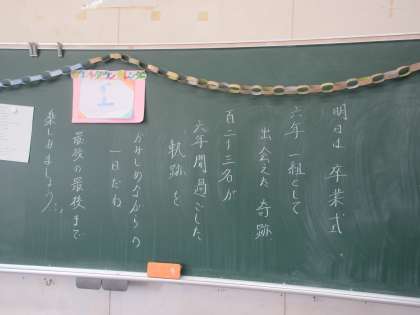 明日は 卒業式
六年一組として
出会えた奇跡
百二十三名が
六年間過ごした
軌跡を
かみしめながらの
一日だね
最後の最後まで
楽しみましょう!!
カウントダウンカレンダー